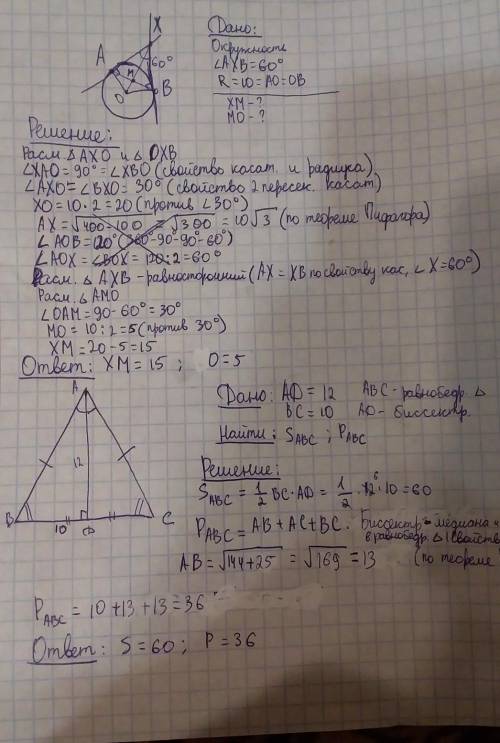 X
A
60°
M
O
B
Дано:
Окружность
∠AXB=60°
R=10=AO=OB
XM-?
MO-?
Решение:
Расм. △AXO и △OXB
∠XAO=90°=∠XBO (свойство касат. и радиуса)
∠AXO=∠BXO=30° (свойство 2 пересек. касат)
XO=10·2=20 (против ∠30°)
AX=√400-100 = √300 = 10√3 (по теореме Пифагора)
∠AOB=120° (360-90-90-60°)
∠AOX=∠BOX=120:2=60°
Расм. △AXB-равносторонний (AX=XB по свойству кас, ∠X=60°)
Расм. △AMO
∠OAM=90-60°=30°
MO=10:2=5 (против 30°)
XM=20-5=15
Ответ: XM=15 ; O=5
A
12
B
10
D
C
Дано: AD=12 ABC-равнобедр. △
BC=10 AD-биссектр.
Найти: S ABC ; P ABC
Решение:
S ABC = 1/2 BC·AD = 1/2 · 12 6 · 10 = 60
P ABC = AB+AC+BC. Биссектр=медиана
в равнобедр. △ (свойств
AB=√144+25 = √169 = 13 (по теореме
P ABC = 10+13+13=36
Ответ: S=60; P=36